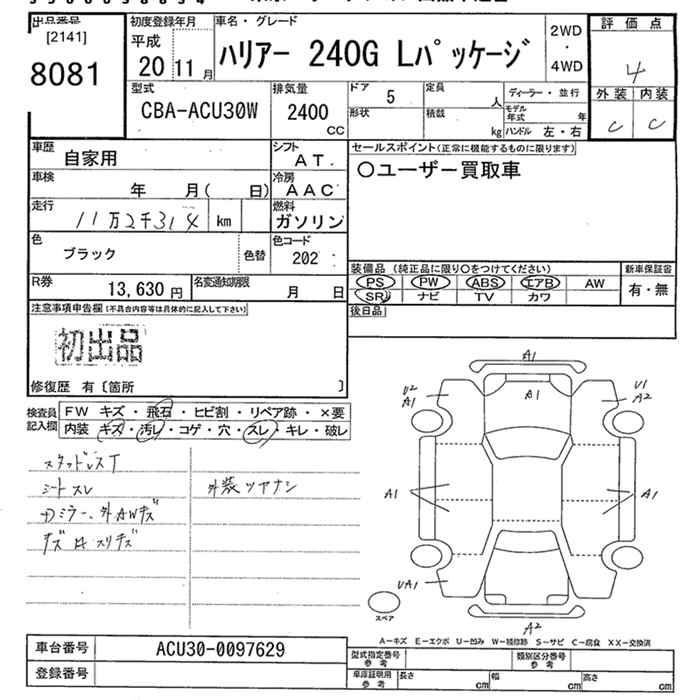 出品番号
[2141]
8081
初度登録年月
平成
20 11月
車名・グレード
ハリアー 240G Lパッケージ
2WD
・
4WD
評価点
4
外装 内装
C C
型式
CBA-ACU30W
排気量
2400
CC
ドア 5
定員 人
形状
積載 kg
ディーラー・並行
モデル年式 年
ハンドル 左・右
車歴
自家用
シフト
AT
車検
年 月( 日)
冷房
AAC
走行
11万2千314 km
燃料
ガソリン
色
ブラック
色替
色コード
202
R券
13,630 円
名変通知期限
月 日
セールスポイント(正常に機能するものに限ります)
○ユーザー買取車
装備品 (純正品に限り○をつけてください)
PS PW ABS エアB AW
SR ナビ TV カワ
新車保証書
有・無
後日品
注意事項申告欄(不具合内容等は具体的に記入して下さい)
初出品
修復歴 有〔箇所 〕
検査員記入欄
FW キズ・飛石・ヒビ割・リペア跡・×要
内装 キズ・汚レ・コゲ・穴・スレ・キレ・破レ
スタッドレスT
シートスレ
ミラー、外AWキズ
キズ スリキズ
外装ツヤナシ
A1
U2
A1
A1
U1
A2
A1
A1
UA1
A2
スペア
A-キズ E-エクボ U-凹み W-補修跡 S-サビ C-腐食 XX-交換済
車台番号 ACU30-0097629
登録番号
型式指定番号
参考
類別区分番号
参考
車庫証明用
参考
長さ cm 幅 cm 高さ cm